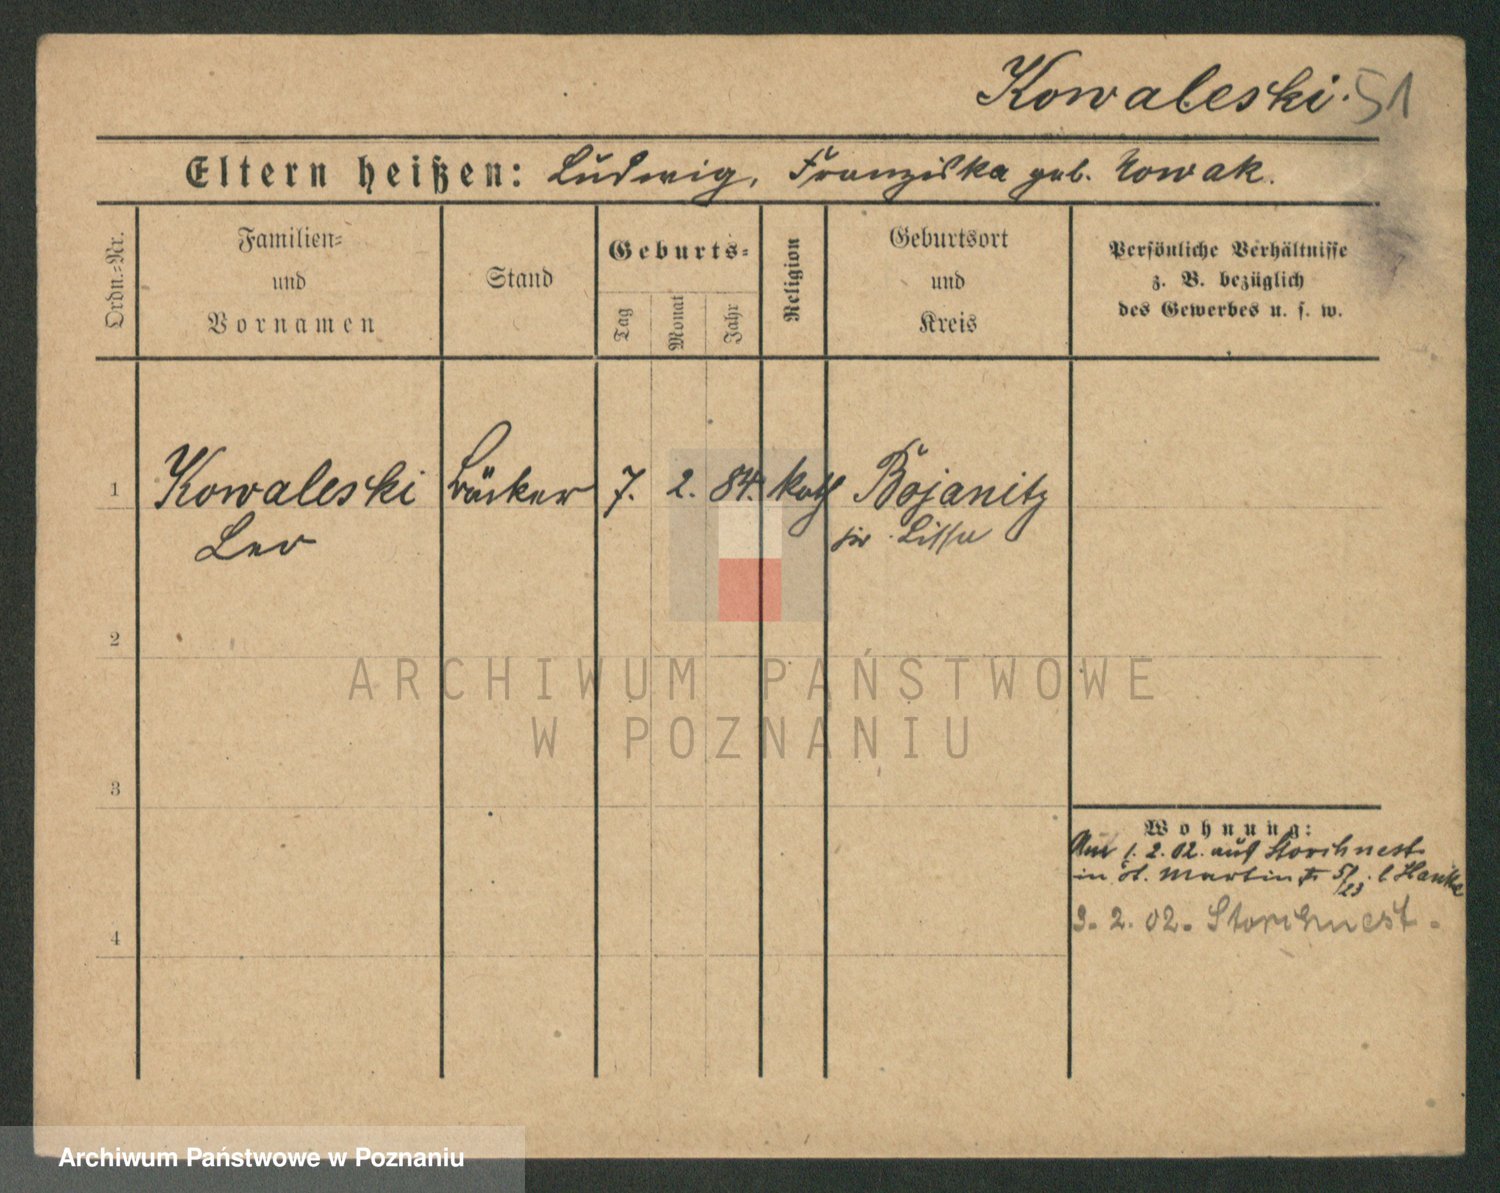 Kowaleski. 51
Eltern heißen: Ludwig, Franziska geb. Nowak.
Ordn.=Nr.
Familien=
und
Vornamen
Stand
Geburts=
Tag
Monat
Jahr
Religion
Geburtsort
und
Kreis
Persönliche Verhältnisse
z. B. bezüglich
des Gewerbes u. s. w.
1 Kowaleski Bäcker 7. 2. 84. kath Bojanitz
Leo Lissa
2
3
4
Wohnung:
1. 2. 02. aus Storchnest
in St. Martin 51/23
3. 2. 02. Storchnest.
ARCHIWUM PAŃSTWOWE
W POZNANIU
Archiwum Państwowe w Poznaniu